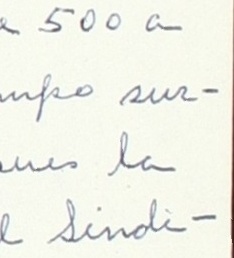 a 500 a
mpo sur-
ues la
l Sindi-